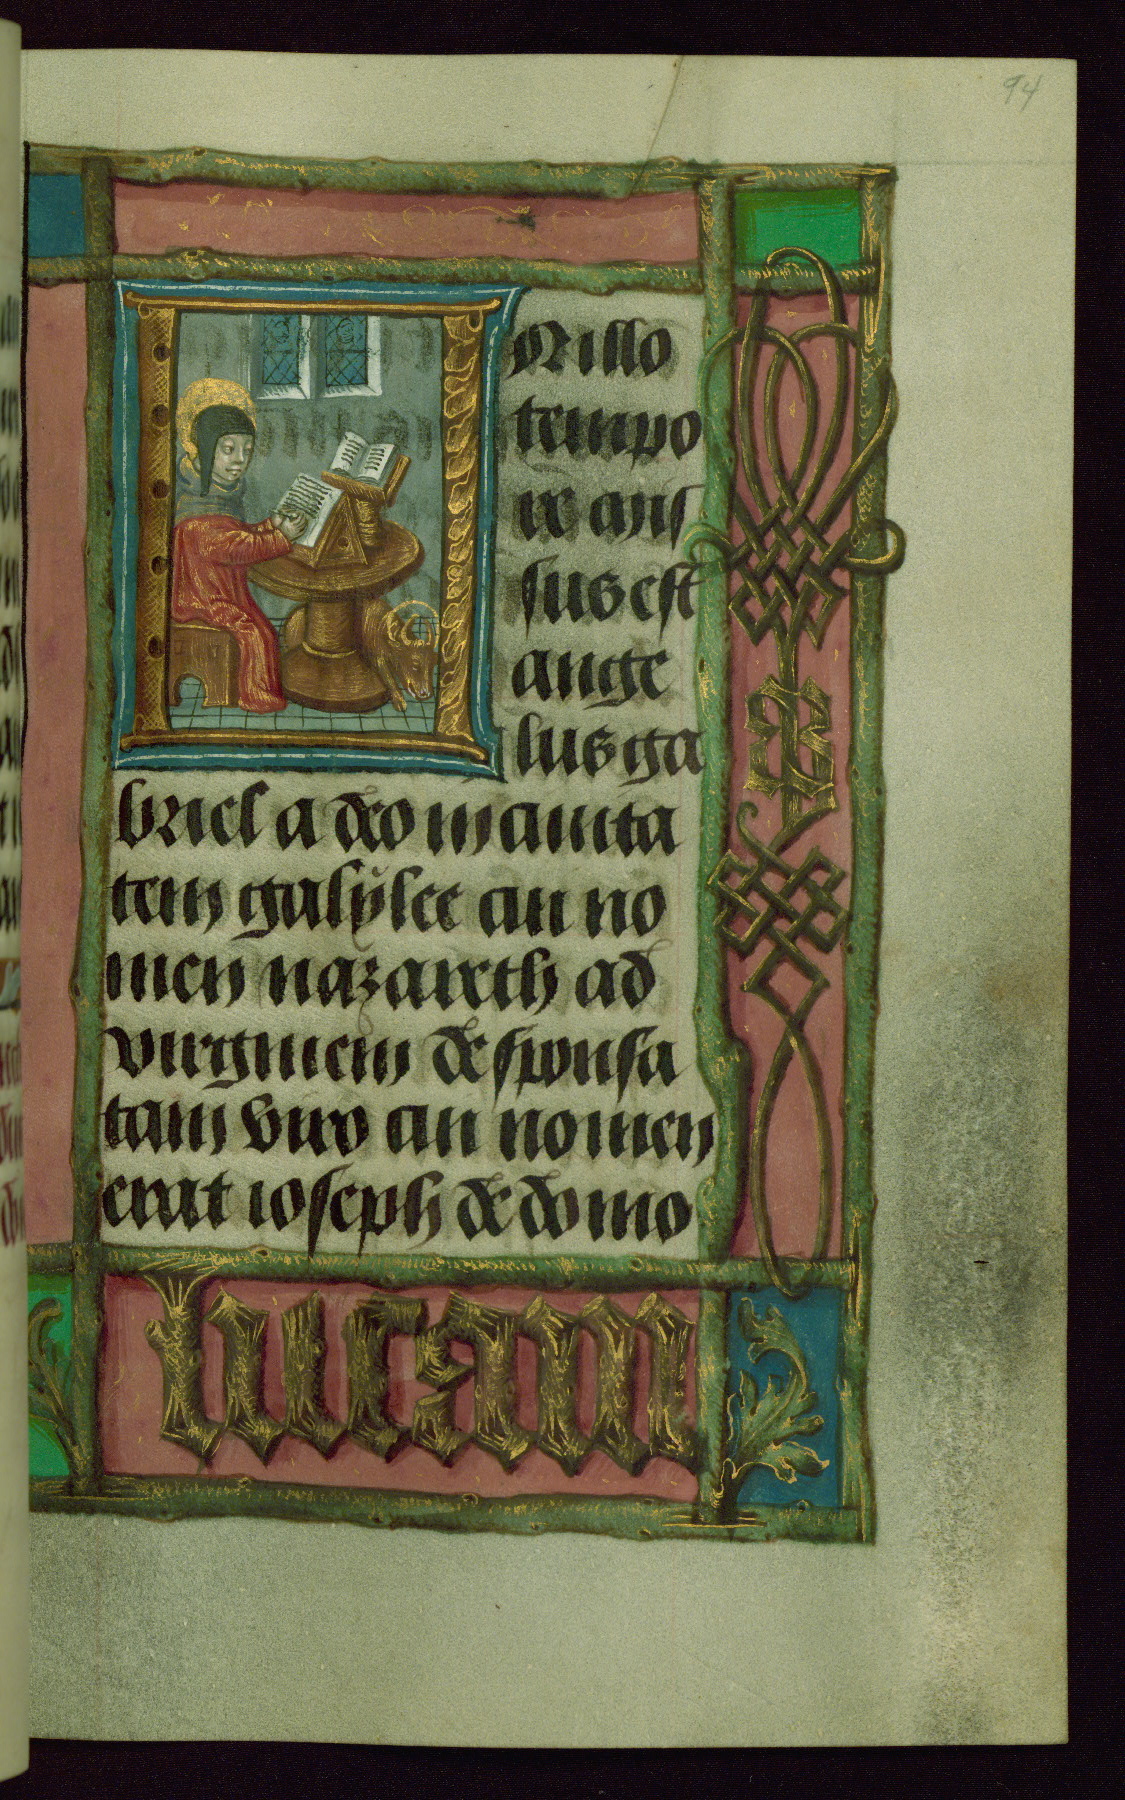 94
N illo
tempo
re mis
sus est
ange
lus ga
briel a deo in ciuita
tem galÿlee cui no
men nazareth ad
virginem desponsa
tam viro cui nomen
erat ioseph de domo
lucam